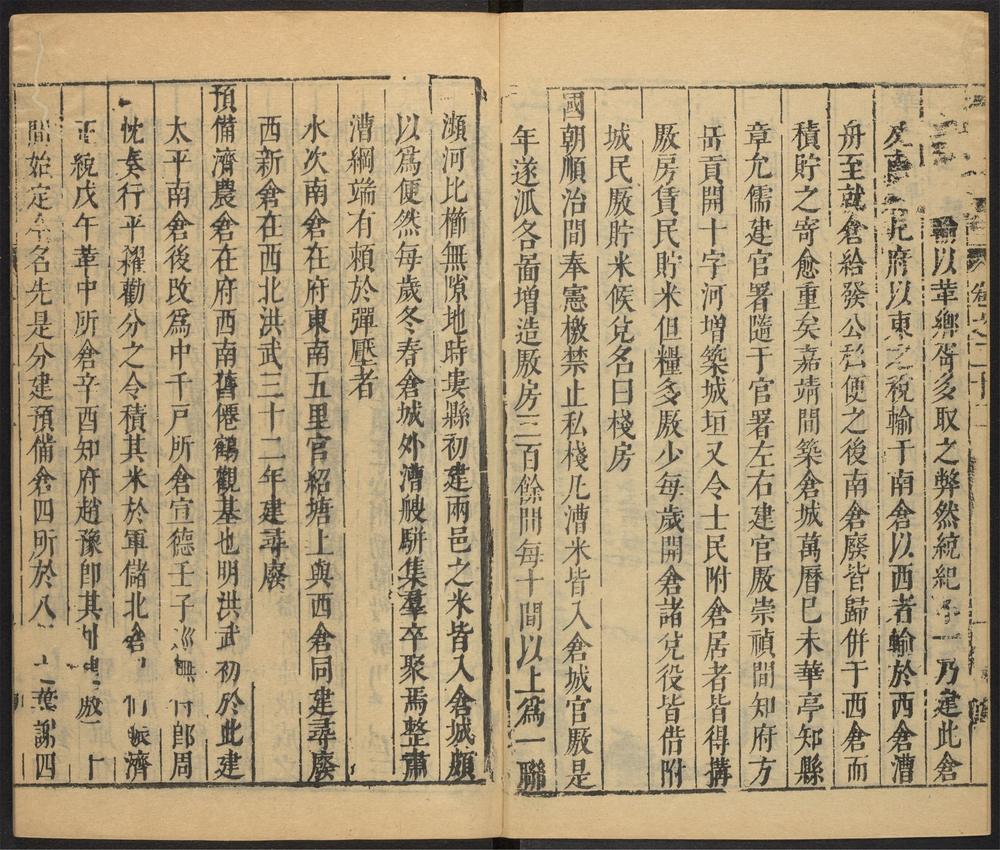 輸以革鄉胥多取之弊然統紀于一乃建此倉
府以東之稅輸于南倉以西者輸於西倉漕
舟至就倉給發公私便之後南倉廢皆歸併于西倉而
積貯之寄愈重矣嘉靖間築倉城萬曆己未華亭知縣
章允儒建官署隨于官署左右建官厫崇禎間知府方
岳貢開十字河增築城垣又令士民附倉居者皆得搆
厫房賃民貯米但糧多厫少每歲開倉諸兌役皆借附
城民厫貯米候兌名曰棧房
國朝順治間奉憲檄禁止私棧凡漕米皆入倉城官厫是
年遂派各啚增造厫房三百餘間每十間以上為一聯
瀕河比櫛無隙地時婁縣初建兩邑之米皆入倉城頗
以為便然每歲冬春倉城外漕艘駢集羣卒聚焉整肅
漕綱端有頼於彈壓者
水次南倉在府東南五里官紹塘上與西倉同建尋廢
西新倉在西北洪武三十二年建尋廢
預備濟農倉在府西南舊僊鶴觀基也明洪武初於此建
太平南倉後改為中千戸所倉宣德壬子巡撫侍郎周
忱奏行平糴勸分之令積其米於軍儲北倉賑濟
正統戊午革中所倉辛酉知府趙豫即其
間始定今名先是分建預備倉四所於八 葉謝四